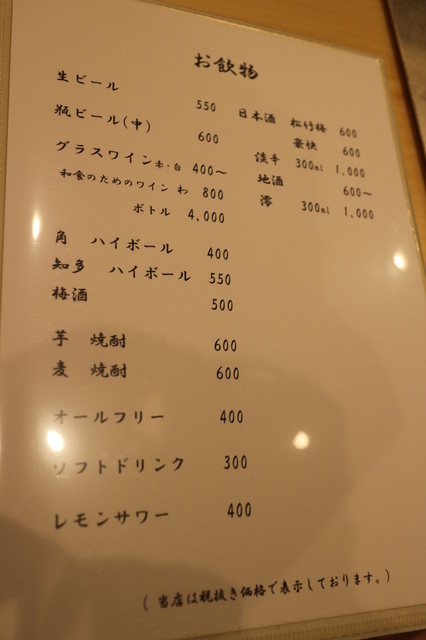 お飲物
生ビール 550
瓶ビール(中) 600
グラスワイン赤・白 400～
和食のためのワイン わ 800
ボトル 4,000
角 ハイボール 400
知多 ハイボール 550
梅酒 500
芋 焼酎 600
麦 焼酎 600
オールフリー 400
ソフトドリンク 300
レモンサワー 400
日本酒 松竹梅 600
豪快 600
淡辛 300ml 1,000
地酒 600～
澪 300ml 1,000
(当店は税抜き価格で表示しております。)